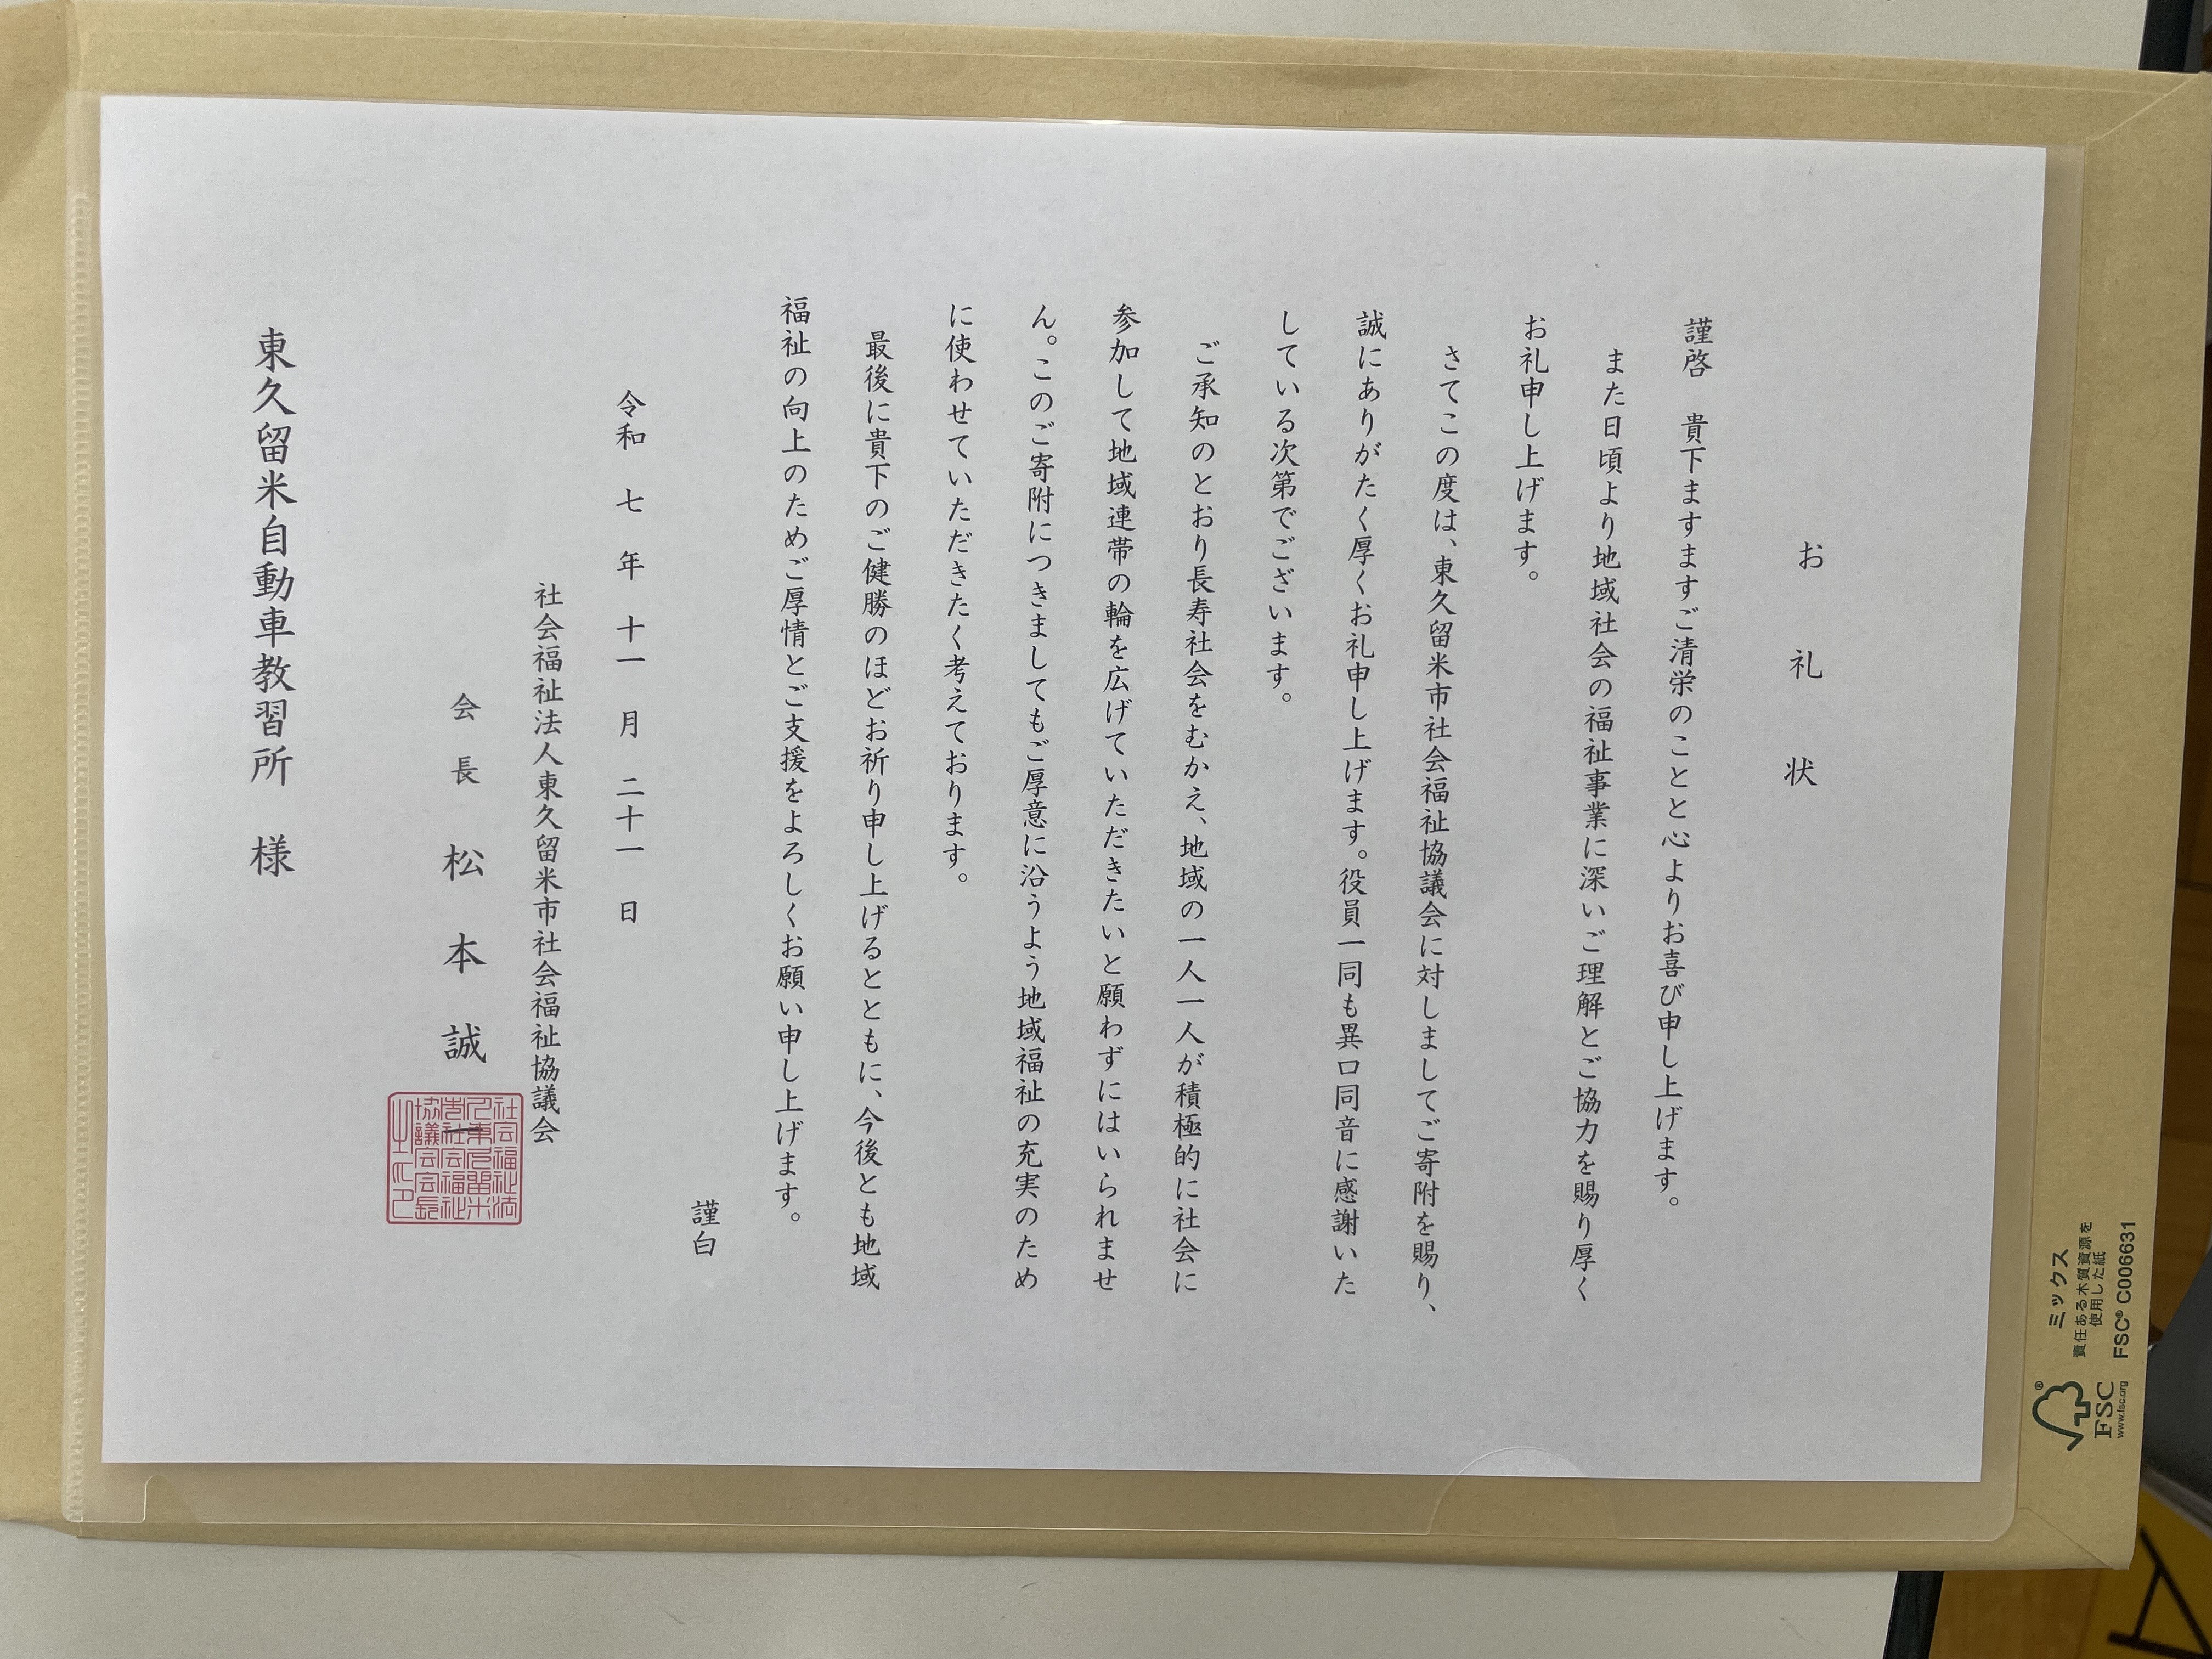 お礼状
謹啓　貴下ますますご清栄のことと心よりお喜び申し上げます。
また日頃より地域社会の福祉事業に深いご理解とご協力を賜り厚く
お礼申し上げます。
さてこの度は、東久留米市社会福祉協議会に対しましてご寄附を賜り、
誠にありがたく厚くお礼申し上げます。役員一同も異口同音に感謝いた
している次第でございます。
ご承知のとおり長寿社会をむかえ、地域の一人一人が積極的に社会に
参加して地域連帯の輪を広げていただきたいと願わずにはいられませ
ん。このご寄附につきましてもご厚意に沿うよう地域福祉の充実のため
に使わせていただきたく考えております。
最後に貴下のご健勝のほどお祈り申し上げるとともに、今後とも地域
福祉の向上のためご厚情とご支援をよろしくお願い申し上げます。
謹白
令和 七 年 十一 月 二十一 日
社会福祉法人東久留米市社会福祉協議会
会長 松本 誠
社会福祉法
人東久留米
市社会福祉
協議会会長
之印
東久留米自動車教習所 様
ミックス
責任ある木質資源を
使用した紙
FSC® C006631
FSC
www.fsc.org